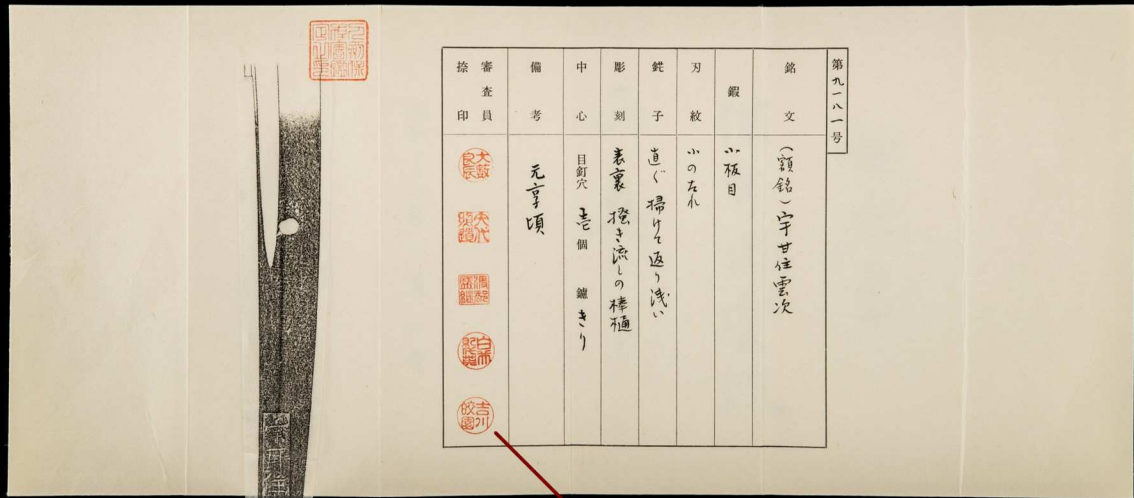 第九一八一号
銘文
(額銘)宇甘住雲次
鍜
小板目
刃紋
小のたれ
鋩子
直ぐ掃けて返り浅い
彫刻
表裏 掻き流しの棒樋
中心
目釘穴 壱個 鑢きり
備考
元享頃
審査員捺印
吉川皎園